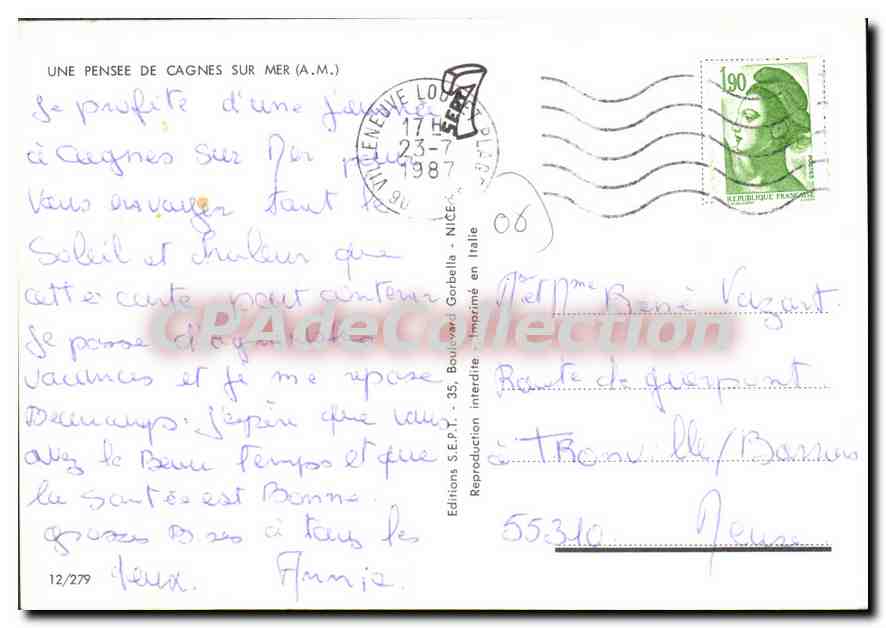 UNE PENSEE DE CAGNES SUR MER (A.M.)
Je profite d'une journée
à Cagnes sur Mer pour
vous envoyer tant le
Soleil et chaleur que
cette carte peut contenir
Je passe d'agréables
vacances et je me repose
Beaucoups. J'espère que vous
avez le Beau Temps et que
la Santée est Bonne.
grosses Bises à tous les
deux. Annie.
12/279
Editions S.E.P.T. - 35, Boulevard Gorbella - NICE
Reproduction interdite - Imprimé en Italie
SEPT
7
06 VILLENEUVE LOUBET PLAGE
17H
23-7
1987
1,90
REPUBLIQUE FRANÇAISE
06
Mr et Mme René Vazart
Route de guerpont
à TRonville/Barrois
55310 Meuse
CPAdeCollection